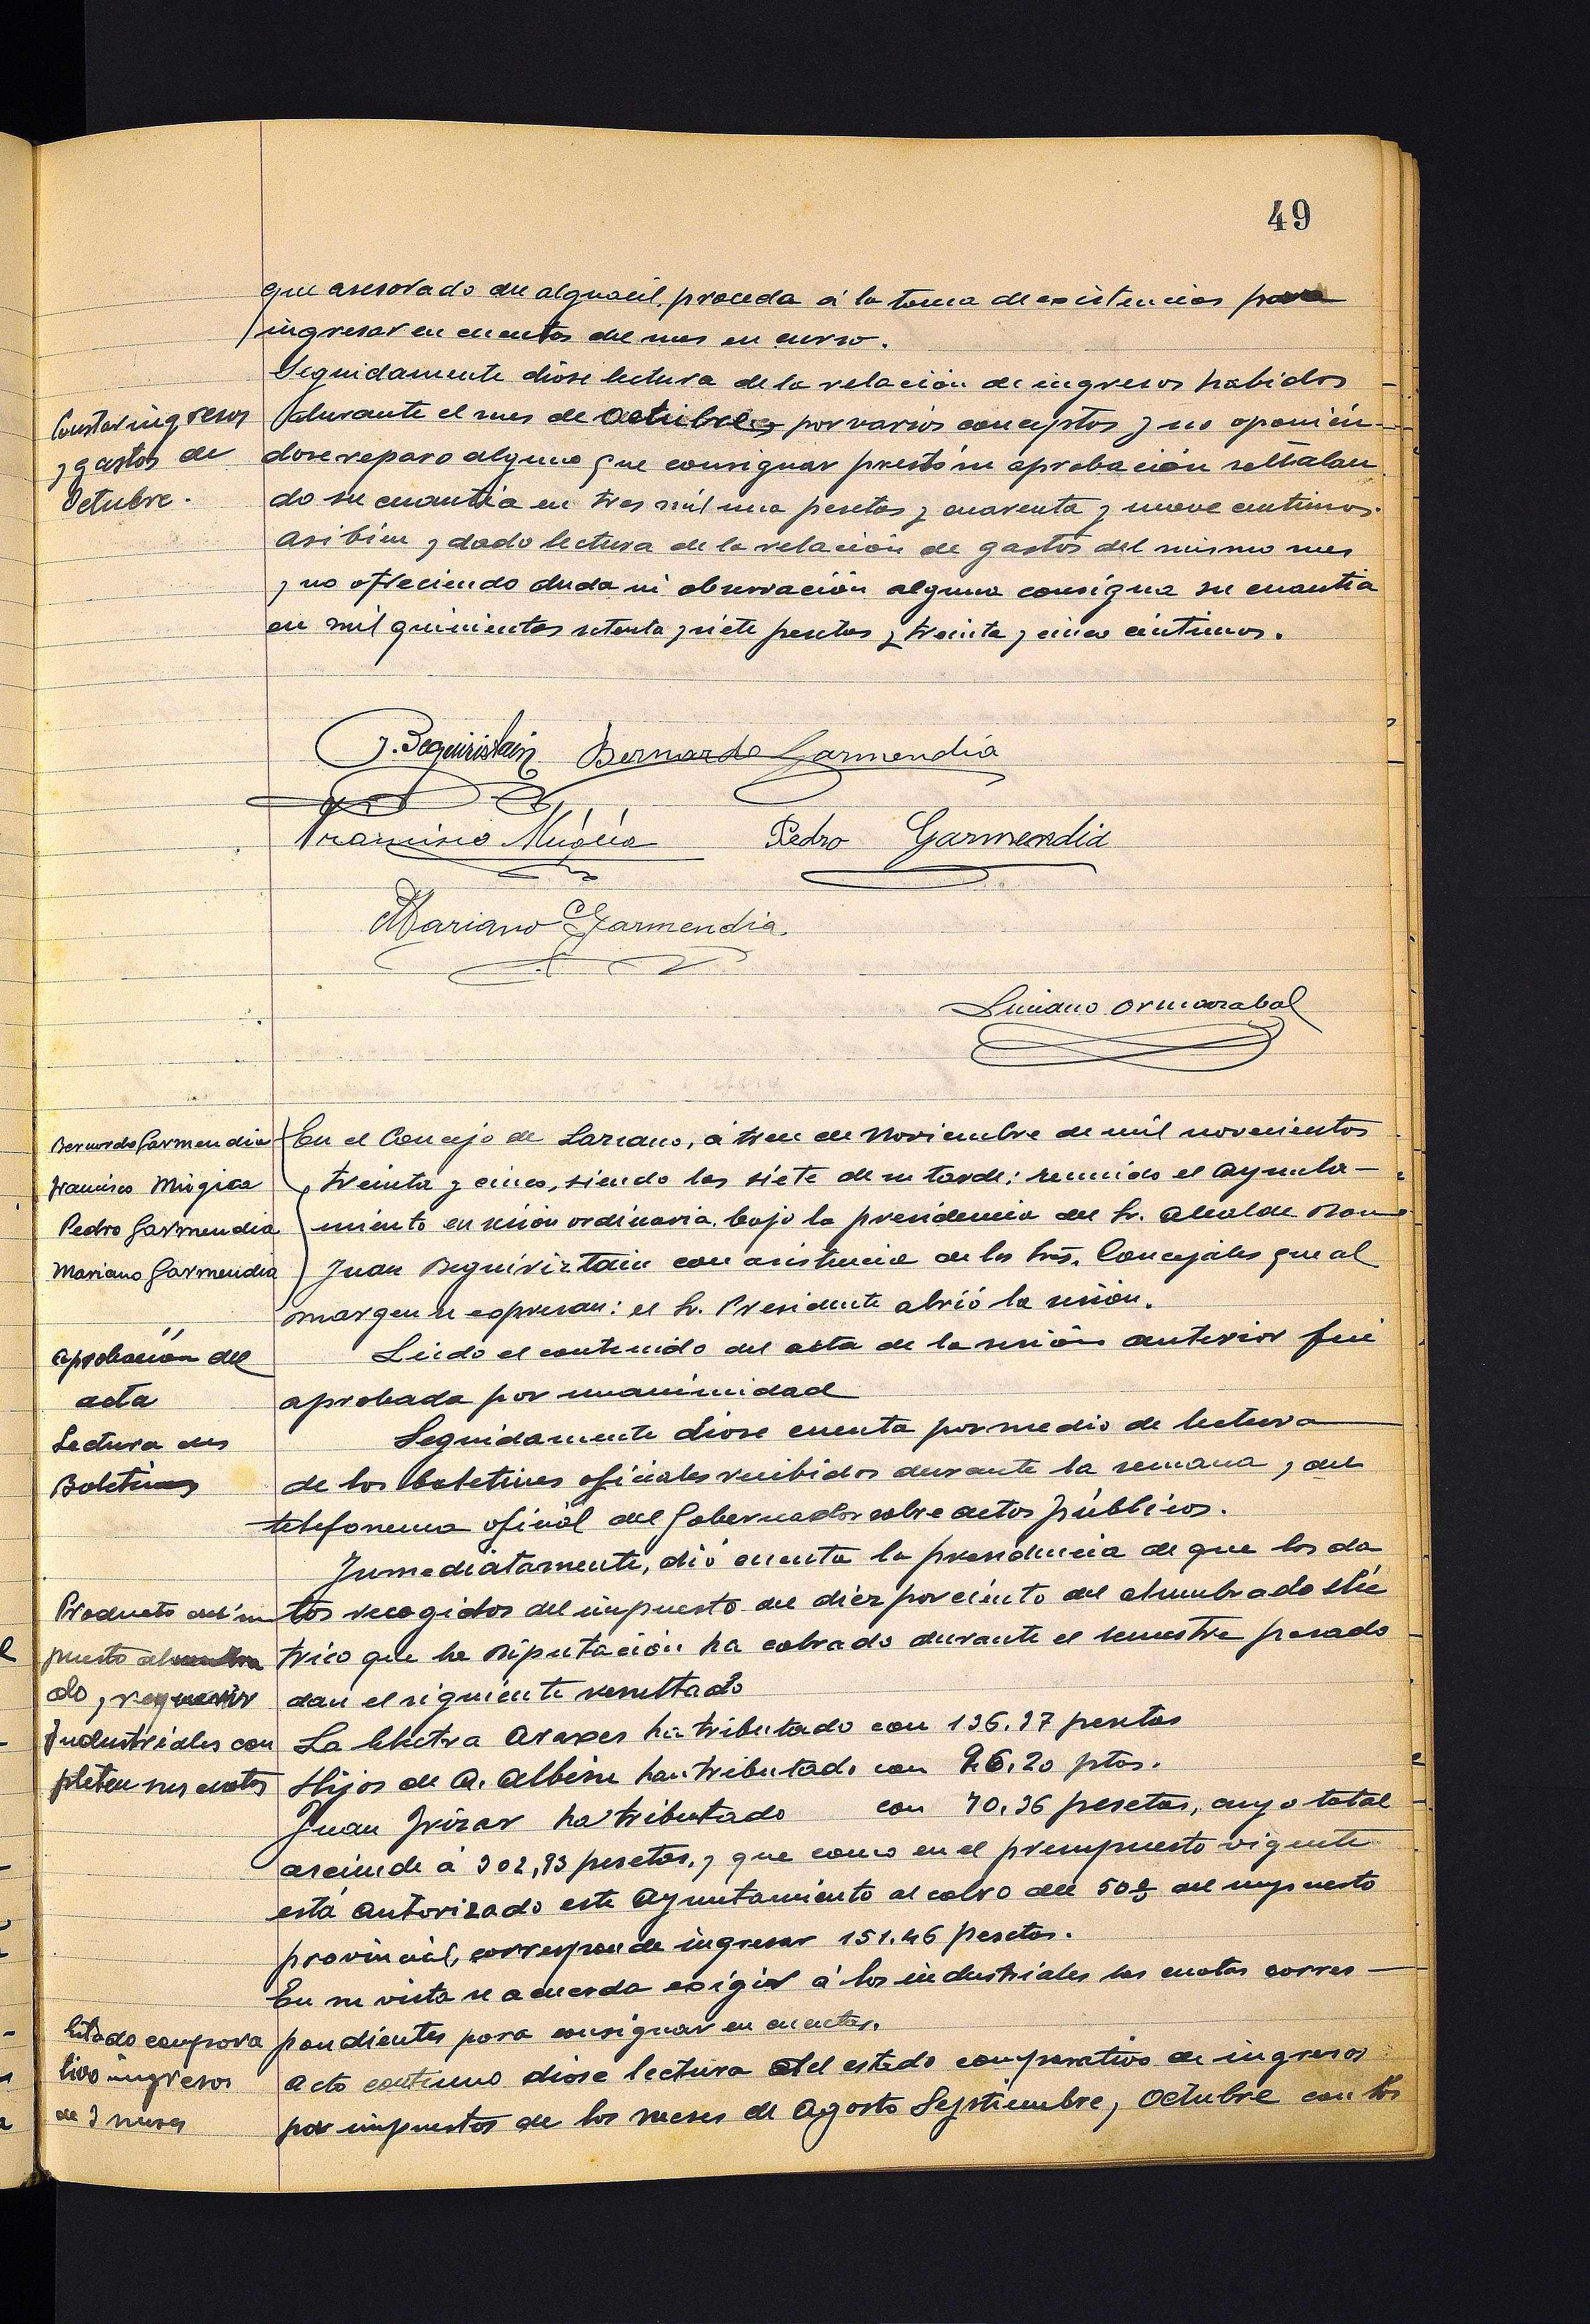 49
que asesorado del alguacil, proceda á la toma de existencias para
ingresar en cuentas del mes en curso.
Seguidamente dióse lectura de la relación de ingresos habidos
Constar ingresos
y gastos de
Octubre.
durante el mes de Octubre, por varios conceptos y no oponién-
dose reparo alguno que consignar prestó su aprobación señalan
do su cuantia en tres mil una pesetas y cuarenta y nueve centimos.
Asi bien y dado lectura de la relación de gastos del mismo mes
y no ofreciendo duda ni observación alguna consigna su cuantia
en mil quinientas setenta y siete pesetas y treinta y cinco céntimos.
J. Beguiristain Bernardo Garmendia
Francisco Múgica Pedro Garmendia
Mariano Garmendia
Luciano Ormazabal
Bernardo Garmendia
Francisco Múgica
Pedro Garmendia
Mariano Garmendia
En el Concejo de Larraul, á trece de Noviembre de mil novecientos
treinta y cinco, siendo las siete de su tarde; reunido el Ayunta-
miento en sesión ordinaria, bajo la presidencia del Sr. Alcalde Don
Juan Beguiriztain con asistencia de los Sres. Concejales que al
margen se expresan: el Sr. Presidente abrió la sesión.
Aprobación del
acta
Leido el contenido del acta de la sesión anterior fué
aprobada por unanimidad
Lectura de
Boletines
Seguidamente dióse cuenta por medio de lectura
de los boletines oficiales recibidos durante la semana y del
telefonema oficial del Gobernador sobre actos públicos.
Inmediatamente, dió cuenta la presidencia de que los da
Producto del im
puesto alumbra
do, y requerir
Industriales com
pleten sus cuotas
tos recogidos del impuesto del diez por ciento del alumbrado eléc
trico que la Diputación ha cobrado durante el semestre pasado
dan el siguiente resultado
La Electra Araxes ha tributado con 136.37 pesetas
Hijos de A. Albisu han tributado con 96.20 ptas.
Juan Irizar ha tributado con 70.36 pesetas, cuyo total
asciende á 302,93 pesetas, y que como en el presupuesto vigente
está autorizado este Ayuntamiento al cobro del 50% del impuesto
provincial, corresponde ingresar 151.46 pesetas.
En su vista se acuerda exigir á los industriales las cuotas corres-
pondientes para consignar en cuentas.
Estado compara
tivo ingresos
de 3 meses
Acto continuo dióse lectura del estado comparativo de ingresos
por impuestos de los meses de Agosto Septiembre, y Octubre con los